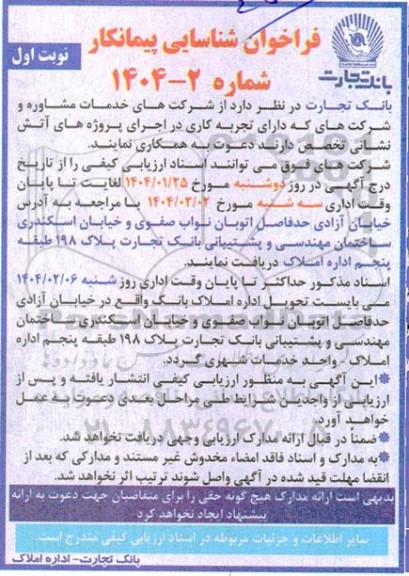 فراخوان شناسایی پیمانکار
شماره ۲-۱۴۰۴
نوبت اول
بانک تجارت
بانک تجارت در نظر دارد از شرکت های خدمات مشاوره و
شرکت های که دارای تجربه کاری در اجرای پروژه های آتش
نشانی تخصص دارند دعوت به همکاری نمایند.
شرکت های فوق می توانند اسناد ارزیابی کیفی را از تاریخ
درج آگهی در روز دوشنبه مورخ ۱۴۰۴/۰۱/۲۵ لغایت تا پایان
وقت اداری سه شنبه مورخ ۱۴۰۴/۰۲/۰۲ با مراجعه به آدرس
خیابان آزادی حدفاصل اتوبان نواب صفوی و خیابان اسکندری
ساختمان مهندسی و پشتیبانی بانک تجارت پلاک ۱۹۸ طبقه
پنجم اداره املاک دریافت نمایند.
اسناد مذکور حداکثر تا پایان وقت اداری روز شنبه ۱۴۰۴/۰۲/۰۶
می بایست تحویل اداره املاک بانک واقع در خیابان آزادی
حدفاصل اتوبان نواب صفوی و خیابان اسکندری ساختمان
مهندسی و پشتیبانی بانک تجارت پلاک ۱۹۸ طبقه پنجم اداره
املاک - واحد خدمات شهری گردد.
*این آگهی به منظور ارزیابی کیفی انتشار یافته و پس از
ارزیابی از واجدین شرایط طی مراحل بعدی دعوت به عمل
خواهد آورد.
*ضمناً در قبال ارائه مدارک ارزیابی وجهی دریافت نخواهد شد.
*به مدارک و اسناد فاقد امضاء مخدوش غیر مستند و مدارکی که بعد از
انقضا مهلت قید شده در آگهی واصل شوند ترتیب اثر نخواهد شد.
بدیهی است ارائه مدارک هیچ گونه حقی را برای متقاضیان جهت دعوت به ارائه
پیشنهاد ایجاد نخواهد کرد
سایر اطلاعات و جزئیات مربوطه در اسناد ارزیابی کیفی مندرج است.
بانک تجارت- اداره املاک